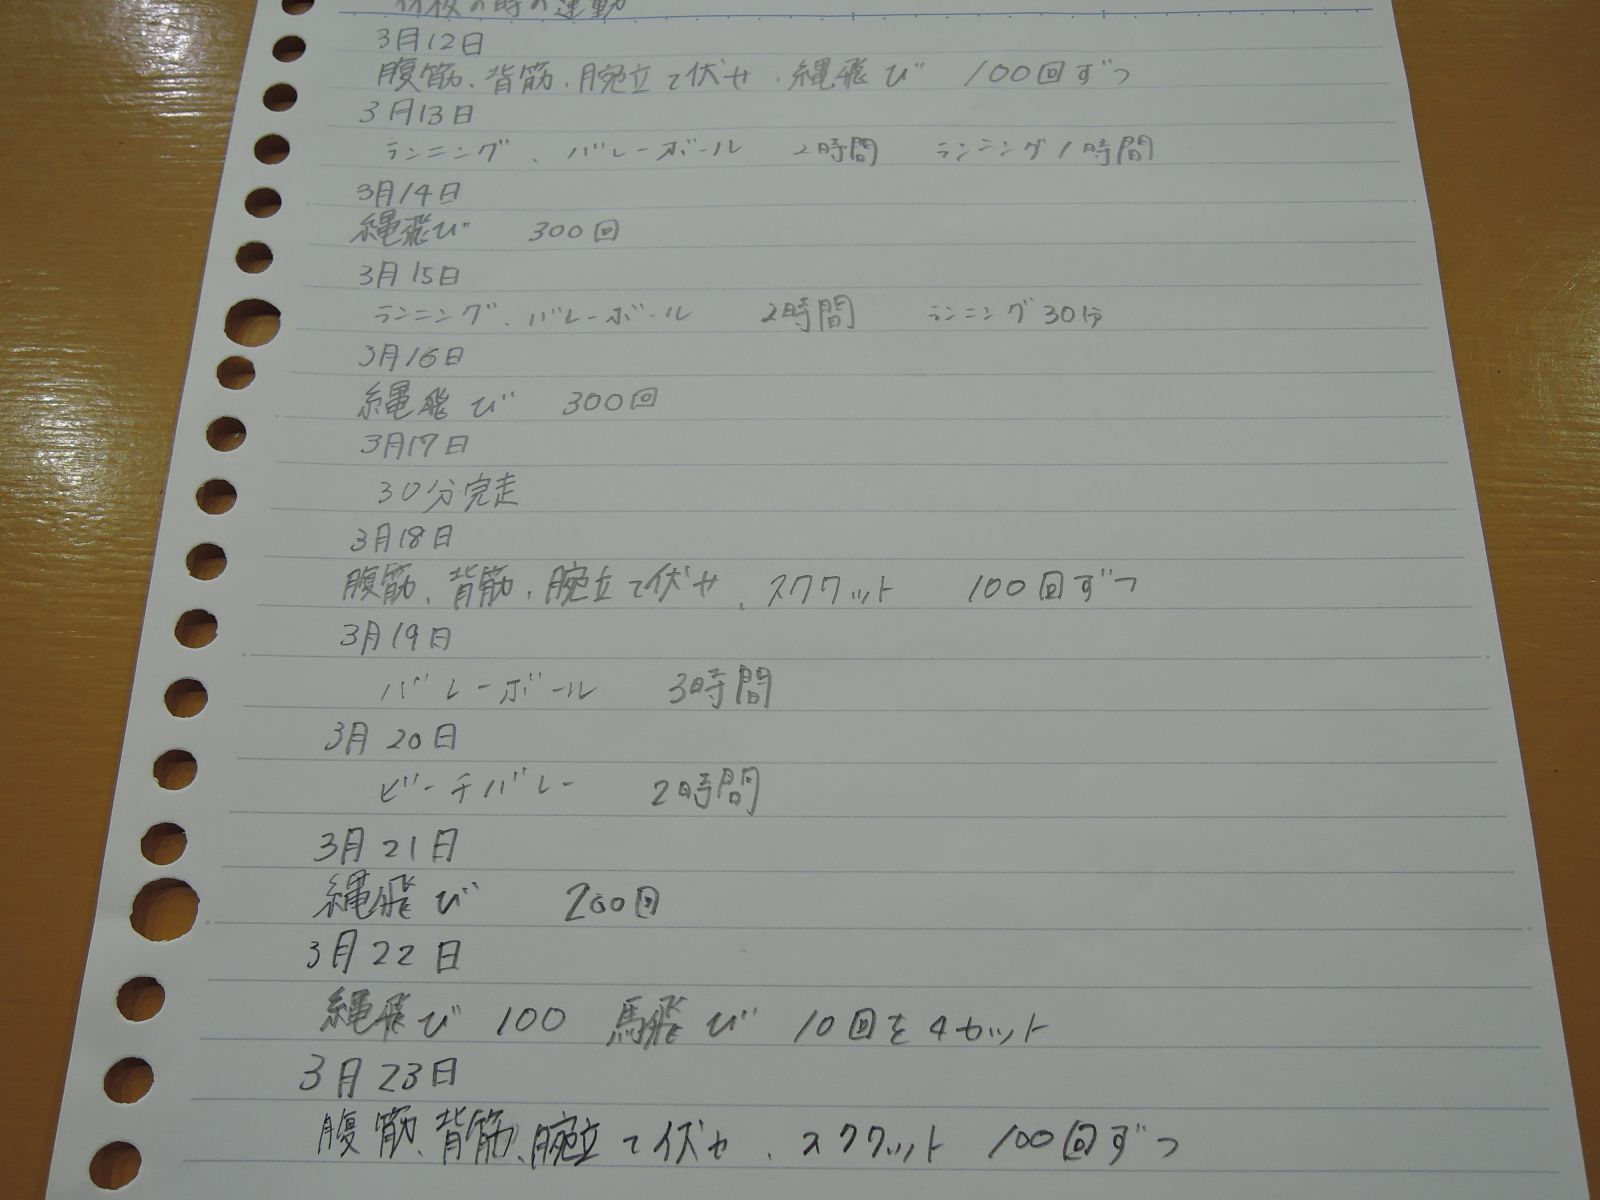 休校の時の運動
3月12日
腹筋、背筋、腕立て伏せ、縄飛び 100回ずつ
3月13日
ランニング、バレーボール 2時間 ランニング1時間
3月14日
縄飛び 300回
3月15日
ランニング、バレーボール 2時間 ランニング30分
3月16日
縄飛び 300回
3月17日
30分完走
3月18日
腹筋、背筋、腕立て伏せ、スクワット 100回ずつ
3月19日
バレーボール 3時間
3月20日
ビーチバレー 2時間
3月21日
縄飛び 200回
3月22日
縄飛び 100 馬飛び 10回を4セット
3月23日
腹筋、背筋、腕立て伏せ、スクワット 100回ずつ